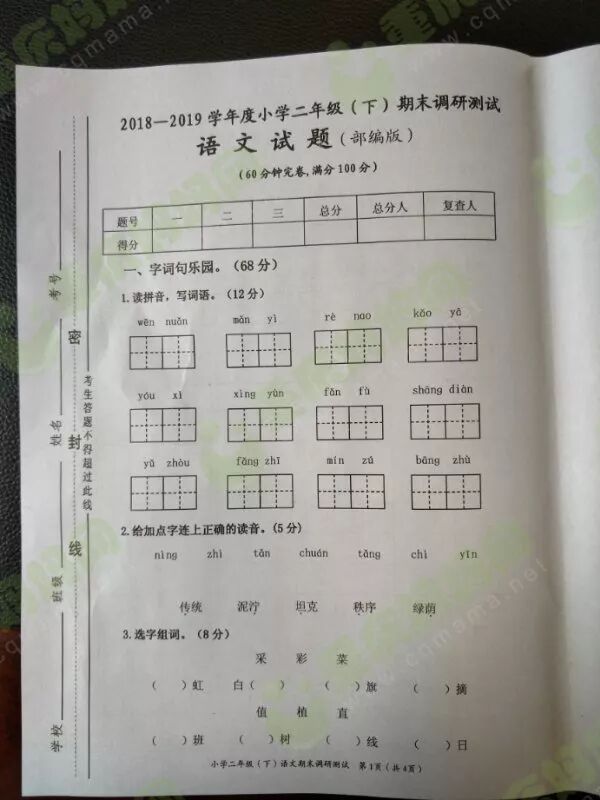 重庆妈妈网
www.cqmama.net
2018—2019 学年度小学二年级（下）期末调研测试
语 文 试 题（部编版）
（60分钟完卷,满分100分）
题号 一 二 三 总分 总分人 复查人
得分
一、字词句乐园。（68分）
1.读拼音，写词语。（12分）
wēn nuǎn mǎn yì rè nao kǎo yā
yóu xì xìng yùn fǎn fù shāng diàn
yǔ zhòu fáng zhǐ mín zú bāng zhù
2.给加点字连上正确的读音。（5分）
nìng zhì tǎn chuán tǎng chì yīn
传统 泥泞 坦克 秩序 绿荫
3.选字组词。（8分）
采 彩 菜
（ ）虹 白（ ） （ ）旗 （ ）摘
值 植 直
（ ）班 （ ）树 （ ）线 （ ）日
小学二年级（下）语文期末调研测试 第1页（共4页）
学校 班级 姓名 考号
密 封 线
考生答题不得超过此线